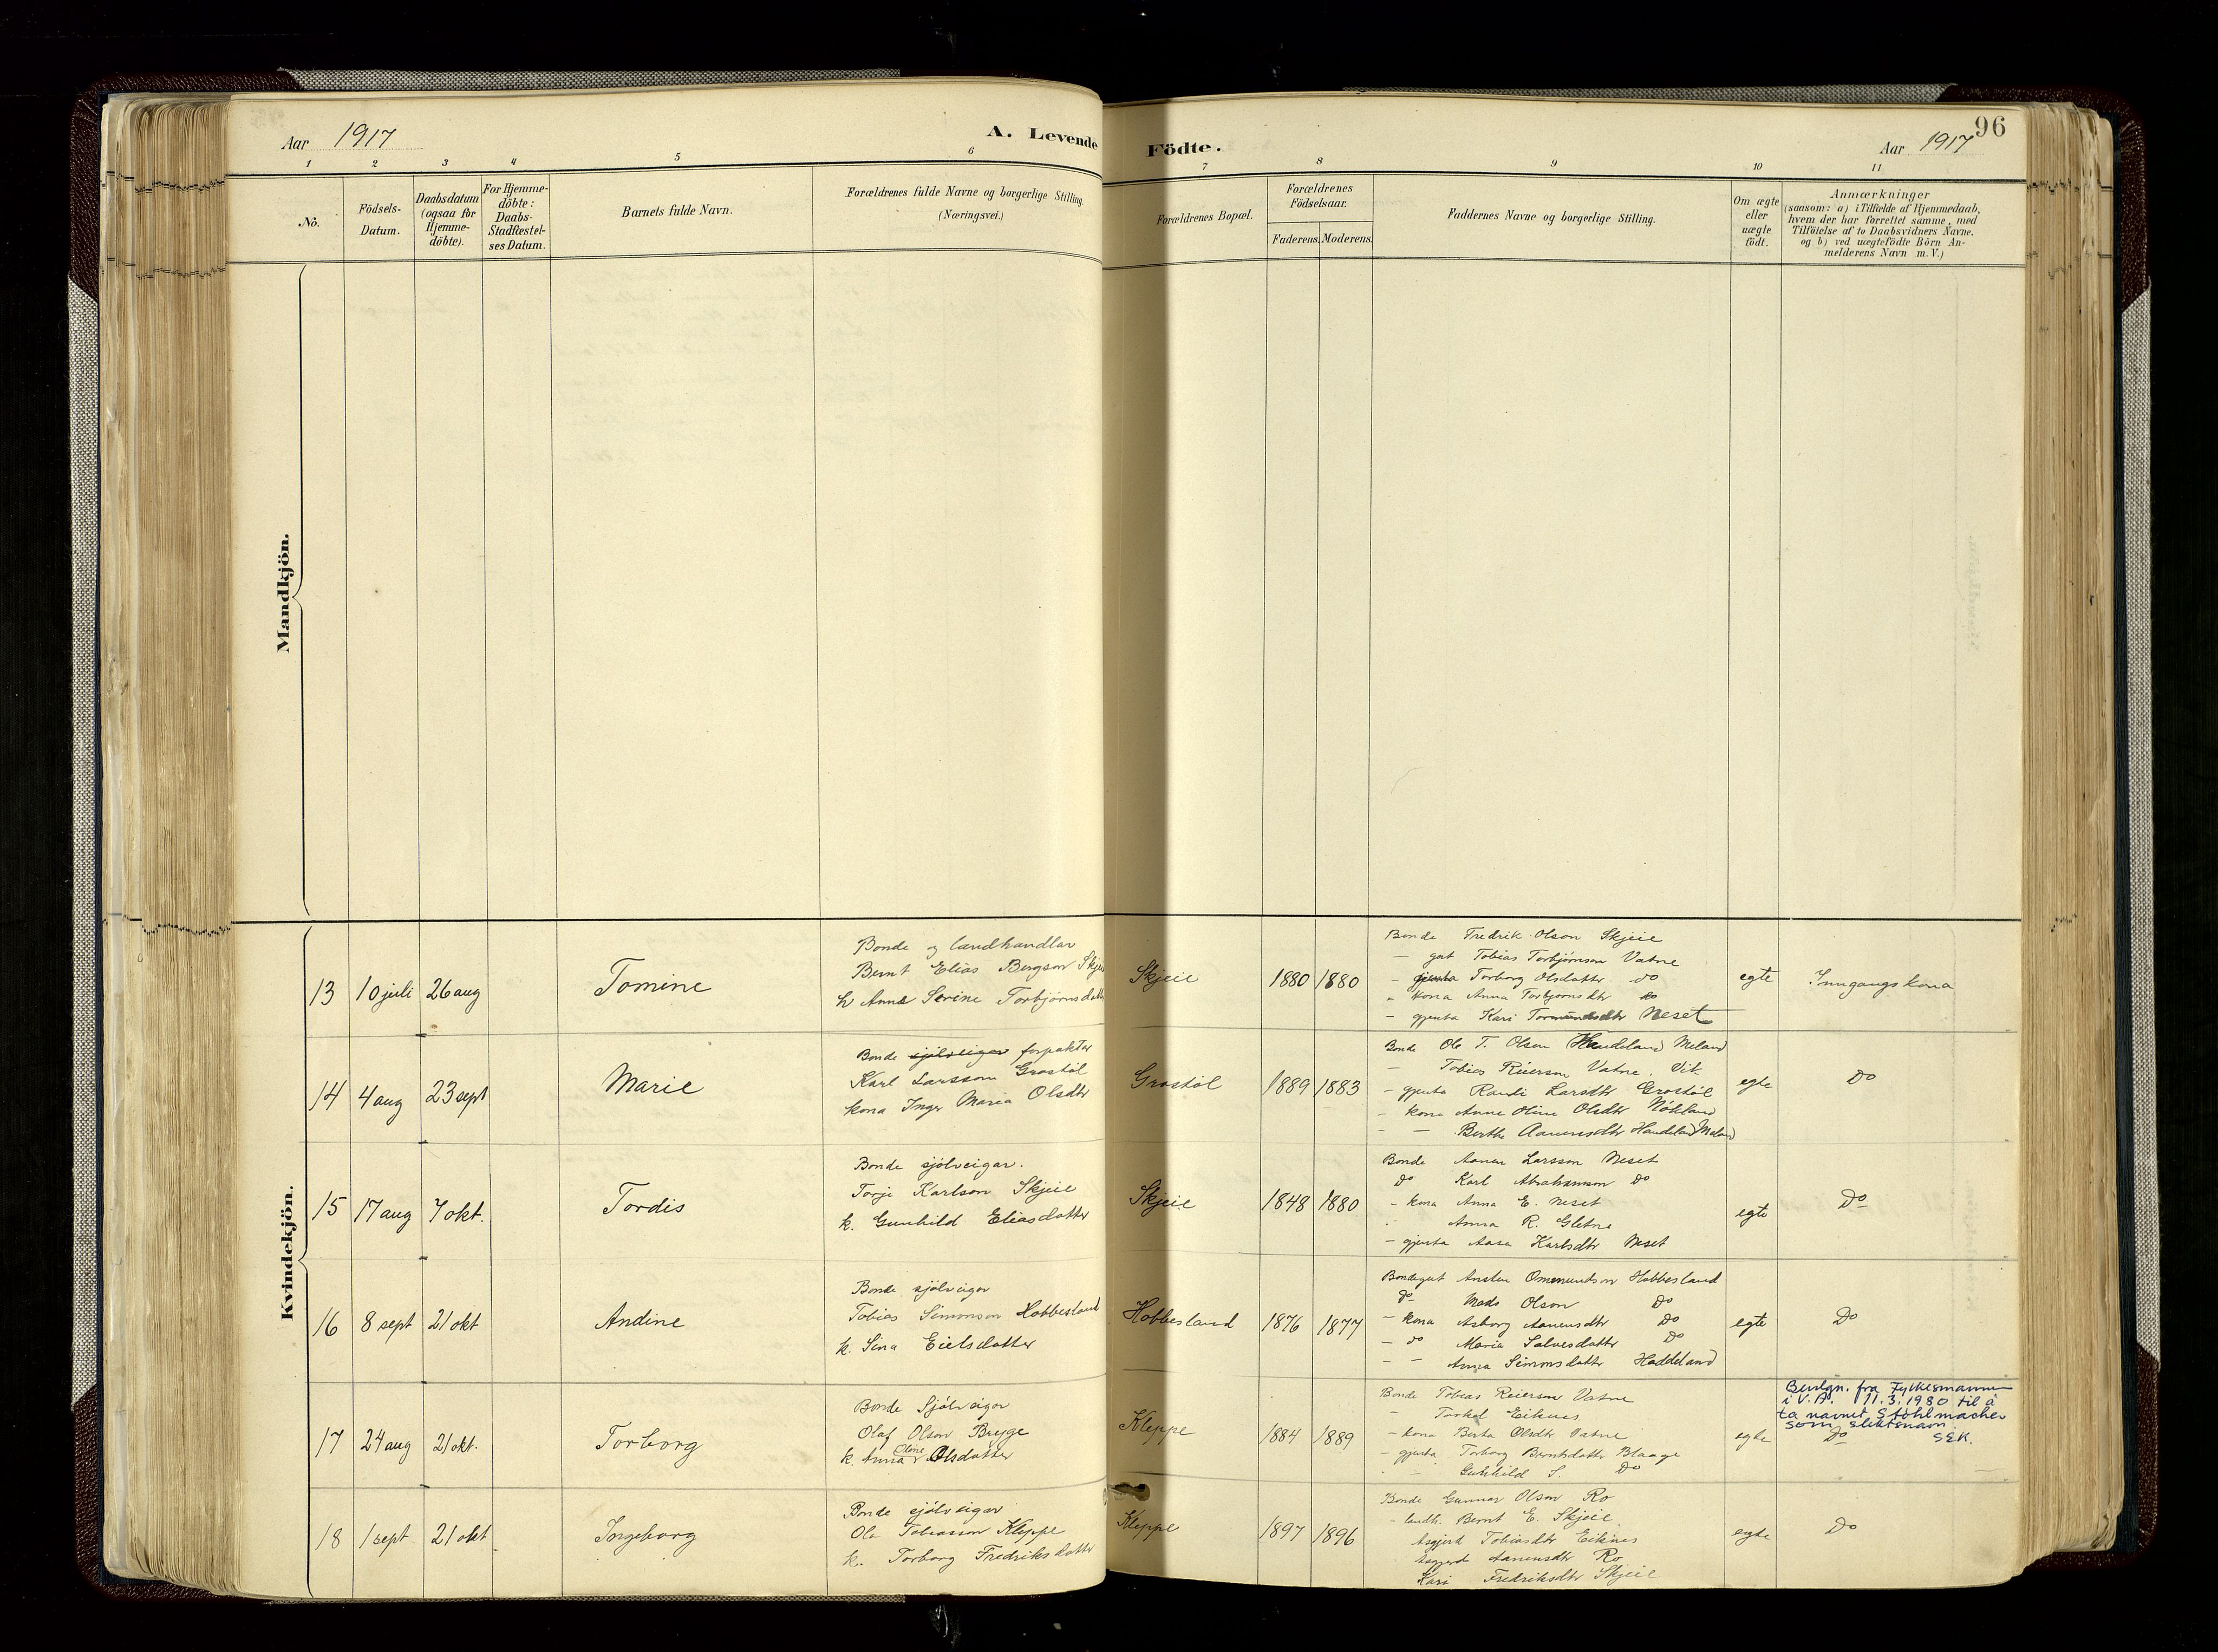 Aar 1917
A. Levende Födte.
96
Aar 1917
1 2 3 4 5 6 7 8 9 10 11
No.
Födsels-
Datum.
Daabsdatum
(ogsaa for
Hjemme-
döbte).
For Hjemme-
döbte:
Daabs-
Stadfæstel-
ses Datum.
Barnets fulde Navn.
Forældrenes fulde Navne og borgerlige Stilling.
(Næringsvei.)
Forældrenes Bopæl.
Forældrenes
Födselsaar.
Faderens. Moderens.
Faddernes Navne og borgerlige Stilling.
Om ægte
eller
uægte
födt.
Anmærkninger
(saasom: a) i Tilfælde af Hjemmedaab,
hvem der har forrettet samme, med
Tilföielse af to Daabsvidners Navne.
og b) ved uægtefödte Börn An-
melderens Navn m. V.)
Mandkjön.
Kvindekjön.
13 10 juli 26 aug
Tomine
Bonde og landhandlar
Bernt Elias Bergson
h Anne Serine Torbjörnsdatter
Skjeie
1880 1880
Bonde Fredrik Olson Skjeie
— gut Tobias Torbjörnson Vatne
- gjenta Torborg Olsdatter do
" kona Anna Torbjornsdtr do
- gjenta Kari Tormundsdtr Neset
egte
Inngangskona
14 4 aug 23 sept
Marie
Bonde sjölveigar forpaktar
Karl Larsson Grostöl
kona Inger Maria Olsdtr
Grostöl
1889 1883
Bonde Ole T. Olsen (Haudeland) Meland
— Tobias Reierson Vatne. Vit.
- gjenta Randi Larsdtr Grostöl
- kona Anne Oline Olsdtr Nökland
- — Berthe Aanensdtr Haudeland Meland
egte
Do
15 17 aug 7 okt.
Tordis
Bonde sjölveigar.
Torje Karlson Skjeie
k. Gunhild Eliasdatter
Skjeie
1848 1880
Bonde Aanen Larsson Neset
do Karl Abrahamson do
- kona Anna E. Neset
Anna R. Gletne
- gjenta Aasa Karlsdtr Neset
egte
Do
16 8 sept 21 okt
Andine
Bonde sjölveigar
Tobias Simonson Hobbesland
k. Sina Eielsdatter
Hobbesland
1876 1877
Bondegut Ansten Ommundson Hobbesland
do Mads Olson Do
- kona Asborg Aanensdtr Do
- do Maria Salvesdatter Do
- - Anna Simonsdatter Haddeland
egte
Do
17 24 aug 21 okt.
Torborg
Bonde Sjölveigar
Olaf Olson Brygge
k. Anna Oline Olsdatter
Kleppe
1884 1889
Bonde Tobias Reierson Vatne
— Torkel Eiknes
- kona Berta Olsdtr Vatne
- gjenta Torborg Berntsdatter Blaage
- — Gunhild S. Do
egte
Bevlgn. fra Fylkesmannen
i V.A. 11.3.1980 til å
ta navnet Stöhlmacher
som slektsnavn.
Do SEK.
18 1 sept 21 okt
Ingeborg
Bonde sjölveigar
Ole Tobiasson Kleppe
k. Torborg Fredriksdatter
Kleppe
1897 1896
Bonde Gunnar Olson Ro
- landh. Bernt E. Skjeie
Asgjerd Tobiasdtr Eiknes
Asgjerd Aanensdtr Ro
Kari Fredriksdtr Skjeie
egte
Do